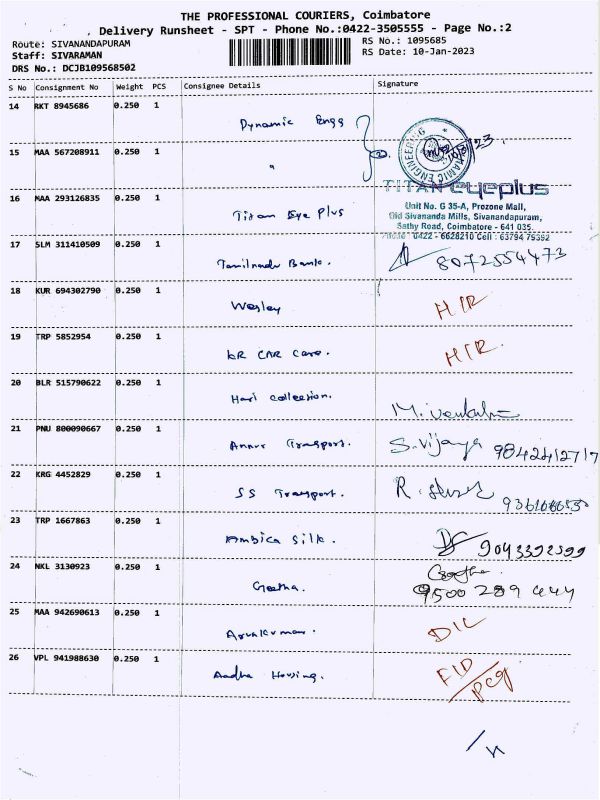 THE PROFESSIONAL COURIERS, Coimbatore
Delivery Runsheet - SPT - Phone No.:0422-3505555 - Page No.:2
Route: SIVANANDAPURAM
RS No.: 1095685
Staff: SIVARAMAN
RS Date: 10-Jan-2023
DRS No.: DCJB109568502
S No Consignment No Weight PCS Consignee Details Signature
14 RKT 8945686 0.250 1 Dynamic Engg
15 MAA 567208911 0.250 1 "
DYNAMIC ENGINEERING
TITAN eyeplus
Unit No. G 35-A, Prozone Mall,
Old Sivananda Mills, Sivanandapuram,
Sathy Road, Coimbatore - 641 035.
0422 - 6628210 Cell : 63794 75392
16 MAA 293126835 0.250 1 Titan Eye Plus
17 SLM 311410509 0.250 1 Tamilnadu Bank. 8072554473
18 KUR 694302790 0.250 1 Wesley
19 TRP 5852954 0.250 1 KR CAR Care.
20 BLR 515790622 0.250 1 Hari collection.
21 PNU 800090667 0.250 1 Annur Transport. S.Vijaya 9842412717
22 KRG 4452829 0.250 1 SS Transport. R.
23 TRP 1667863 0.250 1 Ambica Silk. 9043392399
24 NKL 3130923 0.250 1 Geetha. Geetha. 9500 289 444
25 MAA 942690613 0.250 1 Arunkumar. DIL
26 VPL 941988630 0.250 1 Aadha Housing.